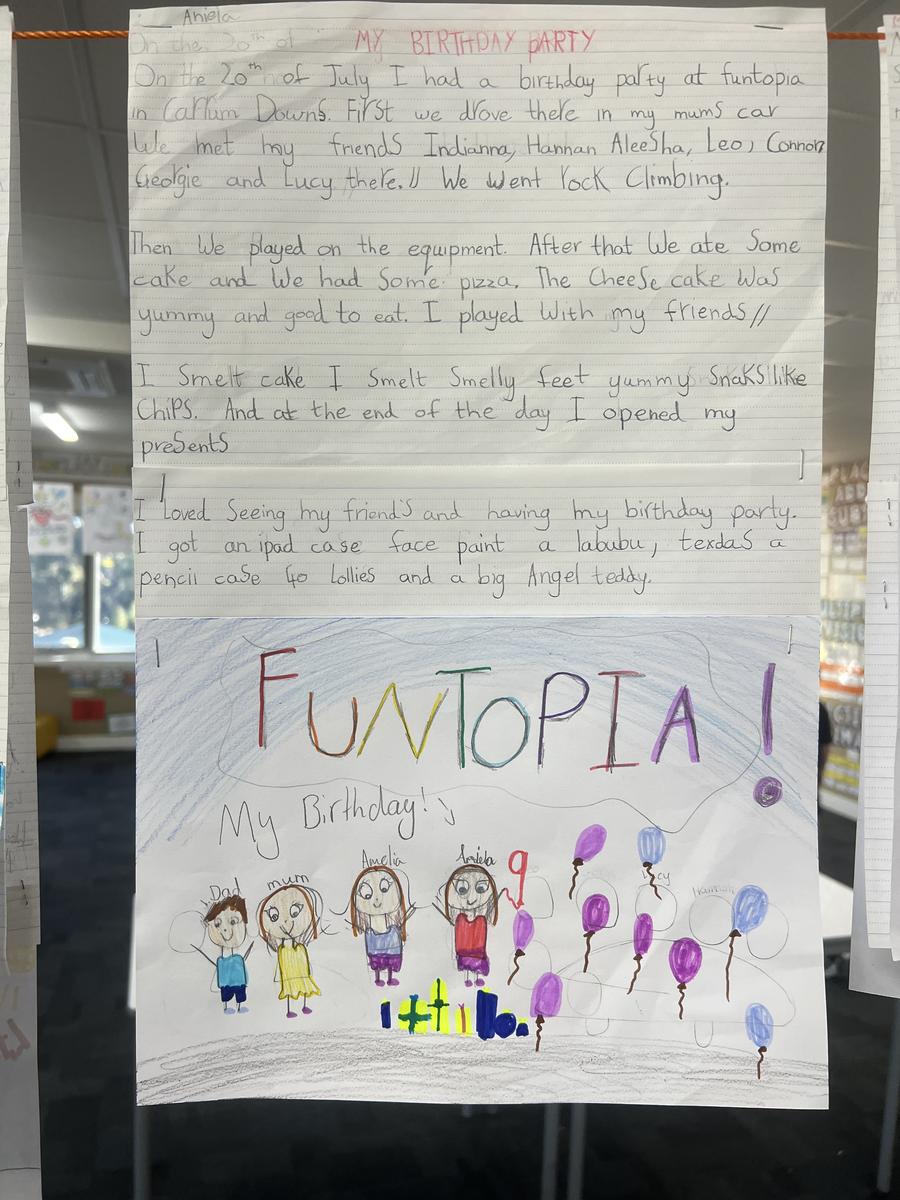 Aniela
On the 20th of
MY BIRTHDAY PARTY
On the 20th of July I had a birthday party at funtopia
in Carrum Downs. First we drove there in my mums car
We met my friends Indianna, Hannah AleeSha, Leo, Connor,
Georgie and Lucy there.// We went rock Climbing.
Then We played on the equipment. After that We ate Some
cake and We had Some pizza. The CheeSe cake was
yummy and good to eat. I played with my friends//
I Smelt cake I Smelt Smelly feet yummy SnakS like
ChiPS. And at the end of the day I opened my
preSentS
I Loved Seeing my friends and having my birthday party.
I got an ipad case face paint a labubu, texdas a
pencil caSe 40 Lollies and a big Angel teddy.
FUNTOPIA!
My Birthday!
Dad mum Amelia Aniela 9